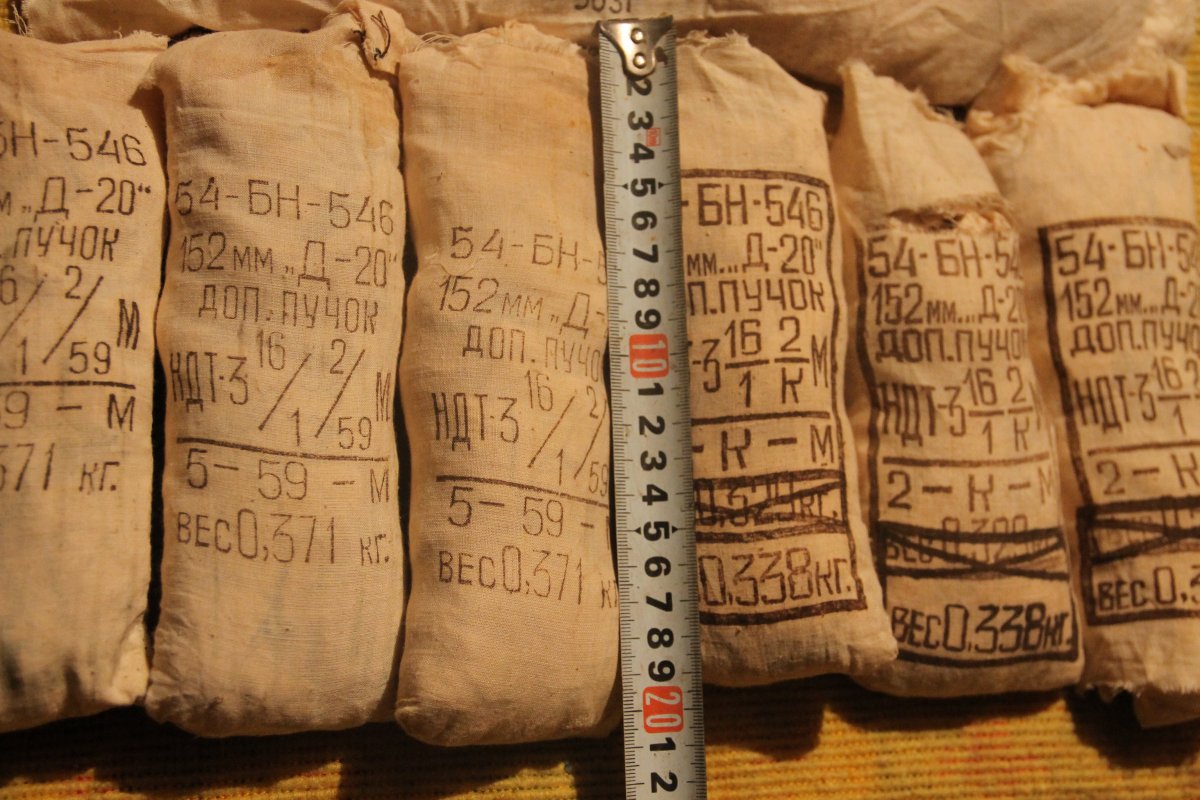 5031
БН-546
м „Д-20“
.ПУЧОК
6/1 2/59 М
9 - М
371 кг.
54-БН-546
152 мм „Д-20“
ДОП. ПУЧОК
НДТ-3 16/1 2/59 М
5 - 59 - М
ВЕС 0,371 кг.
54-БН-5
152 мм „Д-
ДОП. ПУЧО
НДТ-3 16/1 2/59
5 - 59 -
ВЕС 0,371 к
2 3 4 5 6 7 8 9 10 1 2 3 4 5 6 7 8 9 20 1 2
-БН-546
мм...Д-20“
П.ПУЧОК
-3 16/1 2/К М
- К - М
0,338 кг.
54-БН-54
152 мм...Д-20
ДОП.ПУЧОК
НДТ-3 16/1 2/К
2 - К - М
ВЕС 0,338 кг.
54-БН-5
152 мм...Д-2
ДОП.ПУЧО
НДТ-3 16/1 2
2 - К
ВЕС 0,3